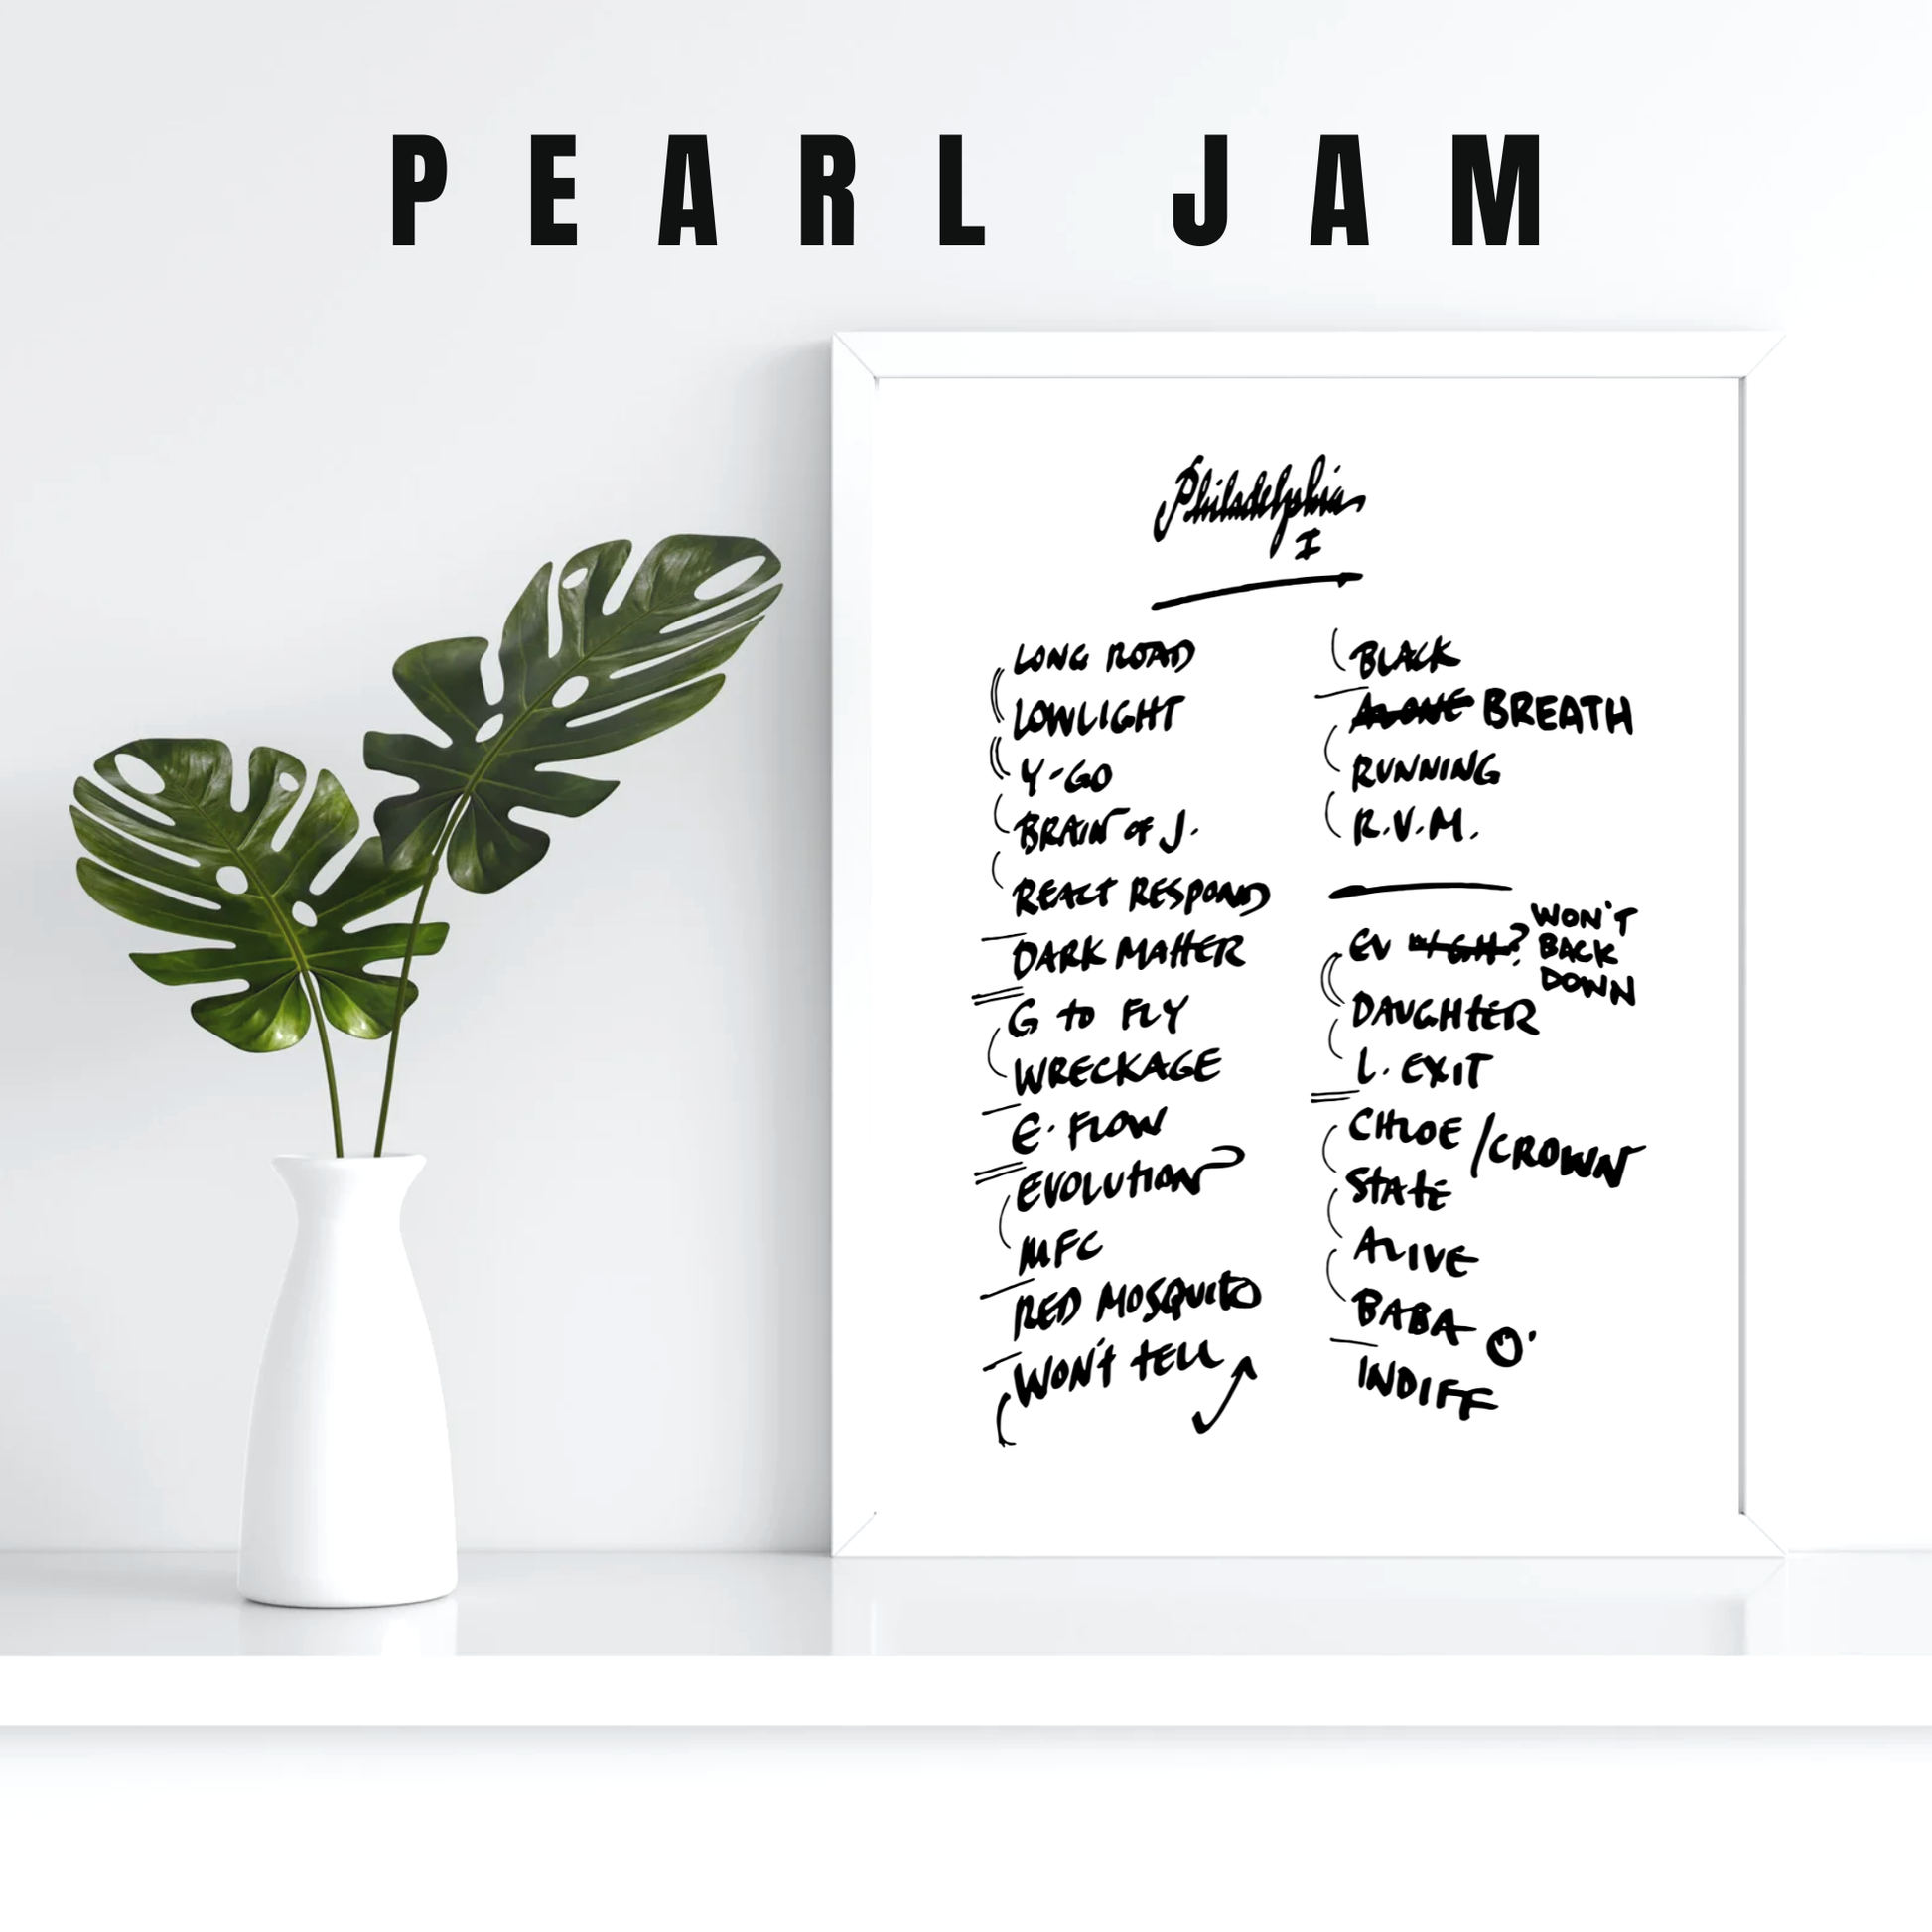 PEARL JAM
Philadelphia
I
LONG ROAD
LOWLIGHT
Y-GO
BRAIN OF J.
REACT RESPOND
DARK MATTER
G to FLY
WRECKAGE
E. FLOW
EVOLUTION
MFC
RED MOSQUITO
WON'T TELL
BLACK
ALONE BREATH
RUNNING
R.V.M.
EV ? WON'T
BACK
DOWN
DAUGHTER
L. EXIT
CHLOE /CROWN
STATE
ALIVE
BABA O'
INDIFF